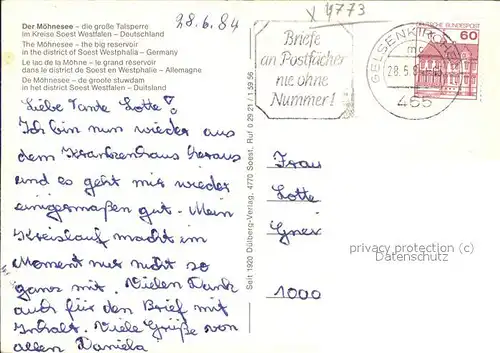 28.6.84
X 4773
Der Möhnesee – die große Talsperre
im Kreise Soest Westfalen – Deutschland
The Möhnesee – the big reservoir
in the district of Soest Westphalia – Germany
Le lac de la Möhne – le grand réservoir
dans le district de Soest en Westphalie – Allemagne
De Möhnesee – de groote stuwdam
in het district Soest Westfalen – Duitsland
Liebe Tante Lotte!
Ich bin nun wieder aus
dem Krankenhaus heraus
und es geht mir wieder
einigermaßen gut. Mein
Kreislauf macht im
Moment nur nicht so
ganz mit. Vielen Dank
auch für den Brief mit
Inhalt. Viele Grüße von
allen Daniela
Seit 1920 Dülberg-Verlag, 4770 Soest, Ruf 0 29 21 / 1 59 56
Briefe
an Postfächer
nie ohne
Nummer!
GELSENKIRCHEN
mc
28.5.8
465
DEUTSCHE BUNDESPOST
60
Frau
Lotte
1000
privacy protection
Datenschutz